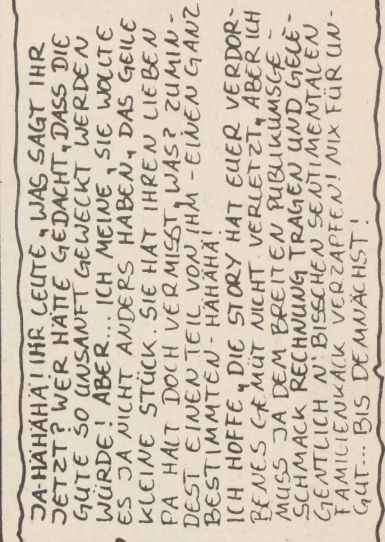 JA-HÄHÄHÄ! IHR LEUTE, WAS SAGT IHR
JETZT? WER HÄTTE GEDACHT, DASS DIE
GUTE SO UNSANFT GEWECKT WERDEN
WÜRDE! ABER... ICH MEINE, SIE WOLLTE
ES JA NICHT ANDERS HABEN, DAS GEILE
KLEINE STÜCK. SIE HAT IHREN LIEBEN
PA HALT DOCH VERMISST, WAS? ZUMIN-
DEST EINEN TEIL VON IHM - EINEN GANZ
BESTIMMTEN - HÄHÄHÄ!
ICH HOFFE, DIE STORY HAT EUER VERDOR-
BENES GEMÜT NICHT VERLETZT, ABER ICH
MUSS JA DEM BREITEN PUBLIKUMSGE-
SCHMACK RECHNUNG TRAGEN UND GELE-
GENTLICH N' BISSCHEN SENTIMENTALEN
FAMILIENKACK VERZAPFEN! NIX FÜR UN-
GUT... BIS DEMNÄCHST!